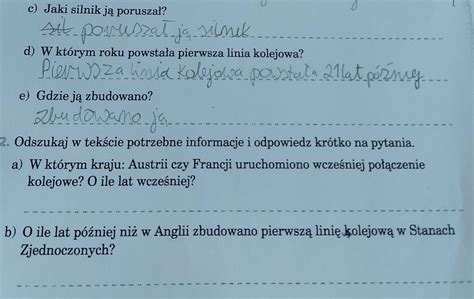 c) Jaki silnik ją poruszał?
poruszał ją silnik
d) W którym roku powstała pierwsza linia kolejowa?
Pierwsza linia kolejowa powstała 21 lat później
e) Gdzie ją zbudowano?
zbudowano ją
2. Odszukaj w tekście potrzebne informacje i odpowiedz krótko na pytania.
a) W którym kraju: Austrii czy Francji uruchomiono wcześniej połączenie
kolejowe? O ile lat wcześniej?
b) O ile lat później niż w Anglii zbudowano pierwszą linię kolejową w Stanach
Zjednoczonych?